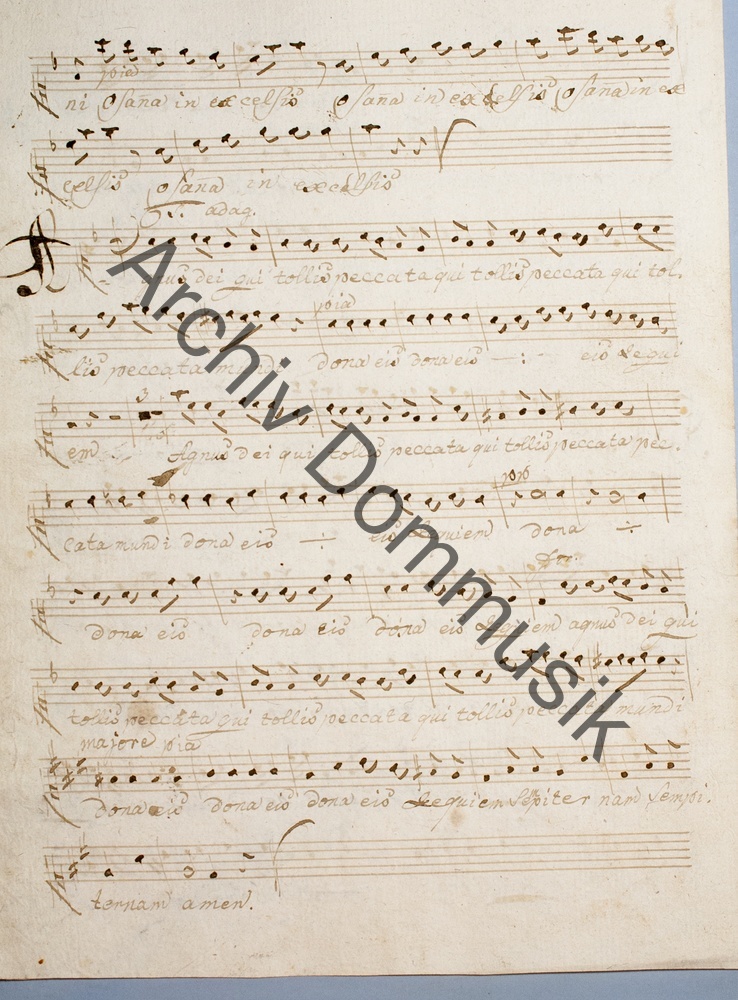 pia
ni Osaña in excelsis Osaña in excelsis Osaña in ex
celsis Osaña in excelsis
adag.
Agnus dei qui tollis peccata qui tollis peccata qui tol.
pia
lis peccata mundi dona eis dona eis —:— eis Requi
3
em Agnus Dei qui tollis peccata qui tollis peccata pec.
cata mundi dona eis —:— eis Requiem dona —:—
dona eis dona eis dona eis Requiem agnus dei qui
tollis peccata qui tollis peccata qui tollis peccata mundi
majore pia
dona eis dona eis dona eis Requiem sempiter nam sempi.
ternam amen.
Archiv Dommusik